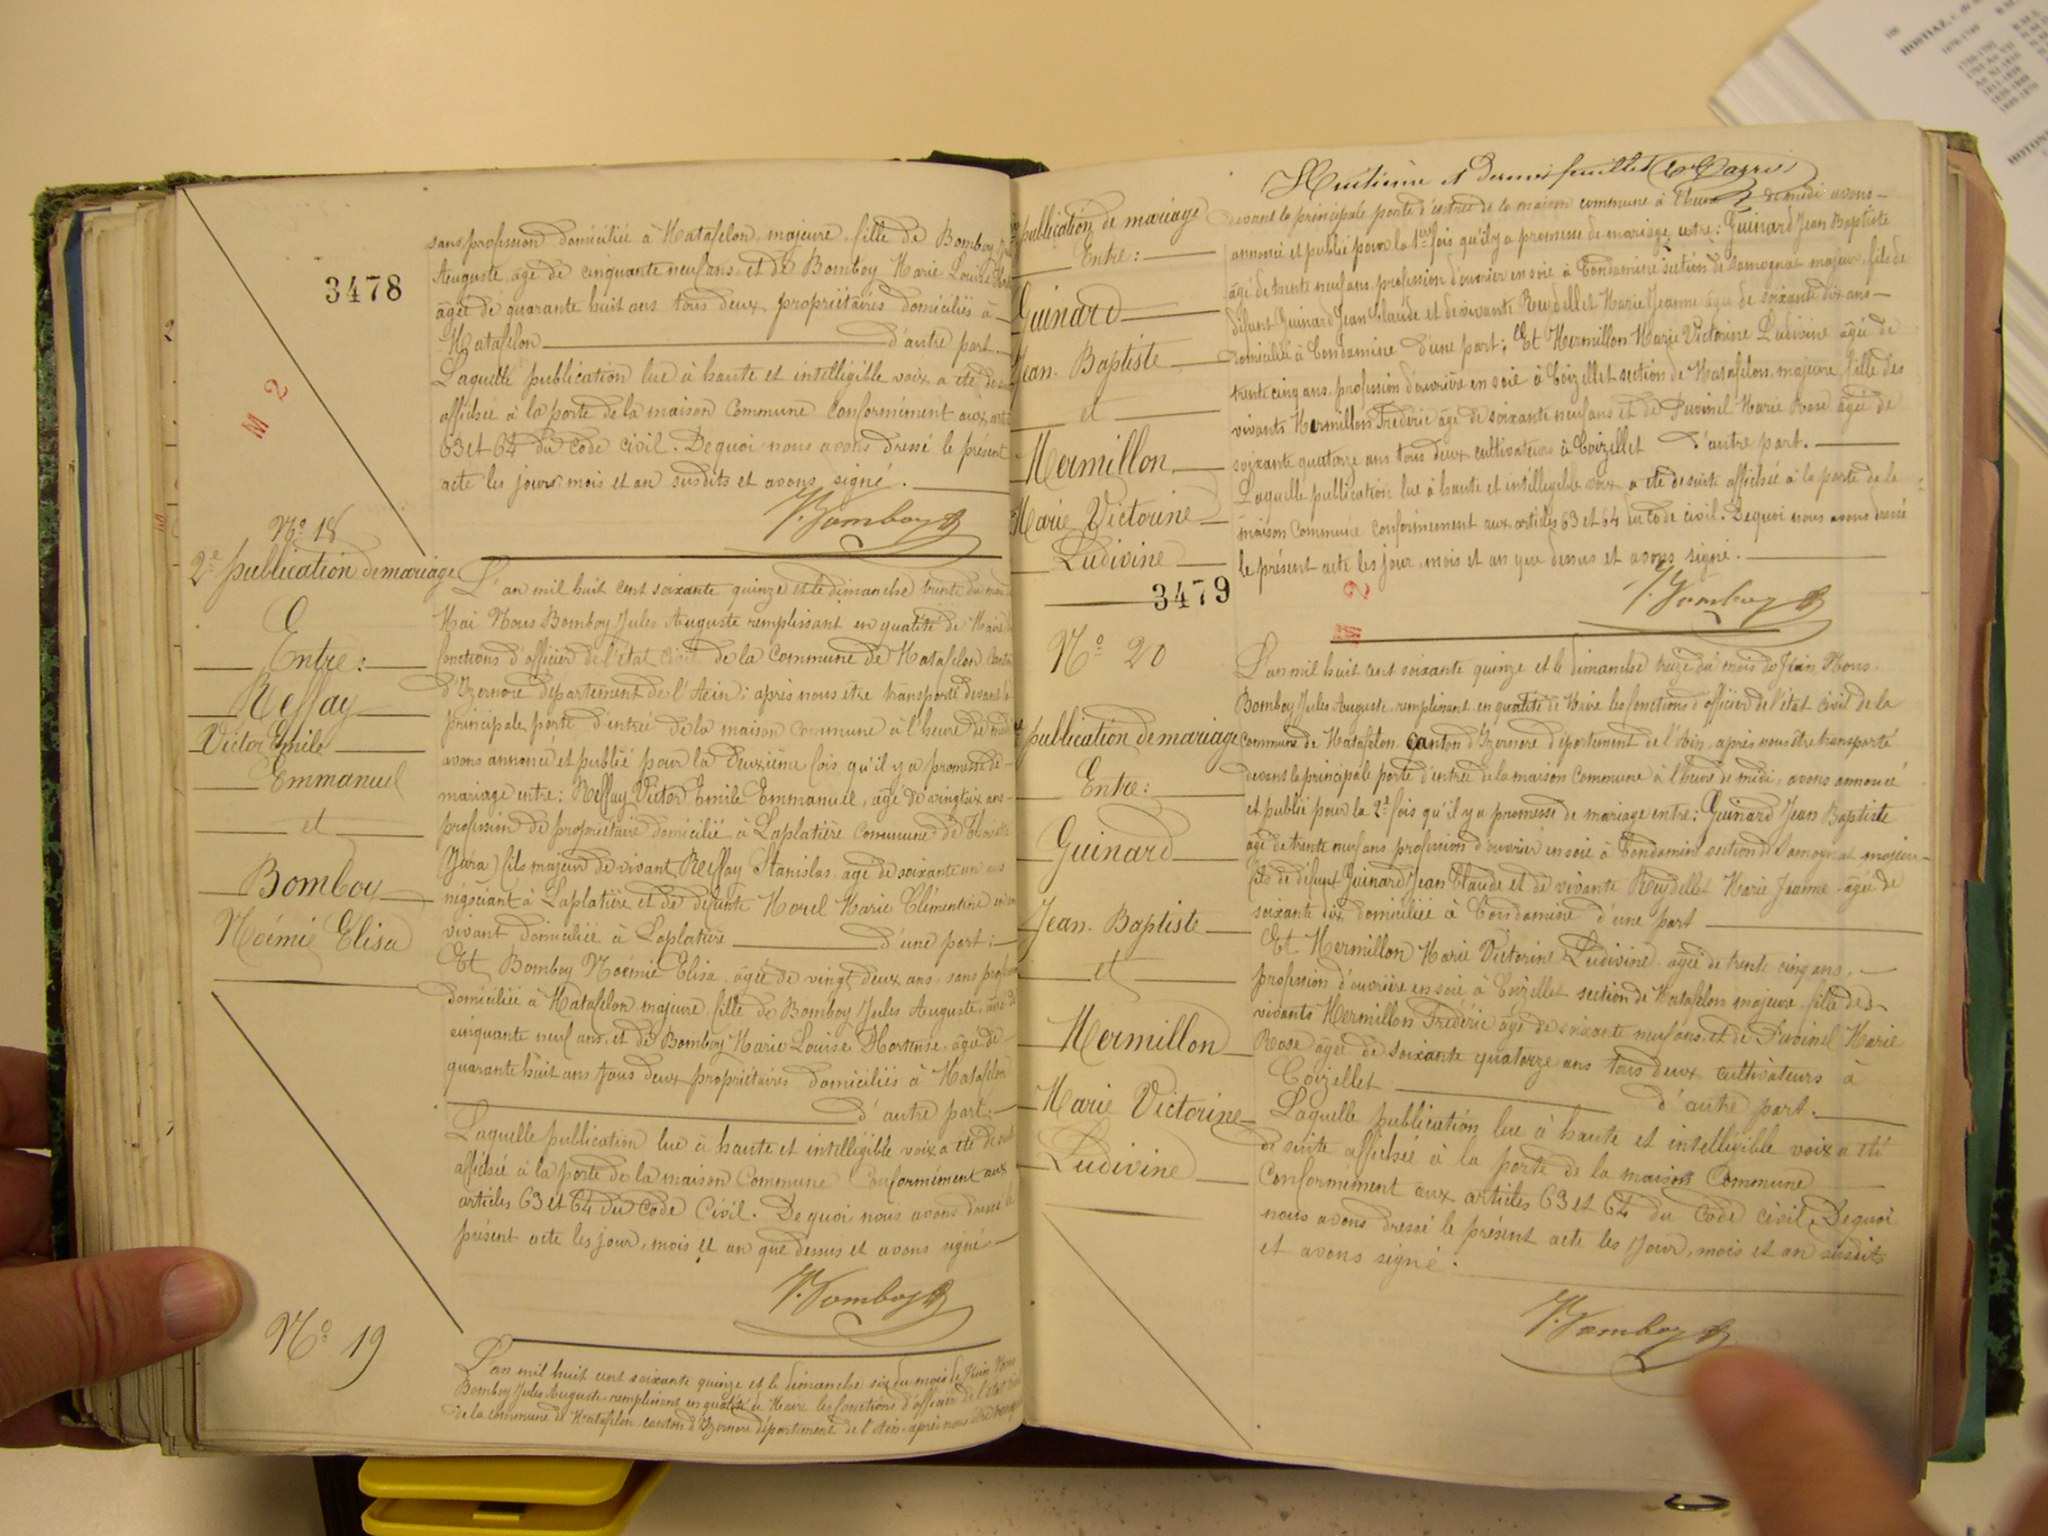 3478
M 2
sans profession domiciliée à Matafelon, majeure, fille de Bomboy
Auguste, âgé de cinquante neuf ans et de Bomboy Marie Louise
âgée de quarante huit ans tous deux propriétaires domiciliés à
Matafelon d'autre part.
Laquelle publication lue à haute et intelligible voix a été de
affichée à la porte de la maison Commune conformément aux
63 et 64 du code civil. De quoi nous avons dressé le présent
acte les jour mois et an susdits et avons signé.
Bomboy
No 18
2e publication de mariage
Entre:
Reffay
Victor Emile
Emmanuel
et
Bomboy
Noémie Elisa
L'an mil huit cent soixante quinze et le dimanche trente du mois
Mai Nous Bomboy Jules Auguste remplissant en qualité de Maire
fonctions d'officier de l'état civil de la Commune de Matafelon
d'Izernore département de l'Ain; après nous être transporté devant
principale porte d'entrée de la maison commune à l'heure de midi
avons annoncé et publié pour la deuxième fois qu'il y a promesse de
mariage entre: Reffay Victor Emile Emmanuel, âgé de vingt six ans
profession de propriétaire domicilié à Laplatière commune de
(Jura) fils majeur de vivant Reffay Stanislas, âgé de soixante un ans
négociant à Laplatière et de défunte Morel Marie Clémentine en son
vivant domiciliée à Laplatière d'une part;
Et Bomboy Noémie Elisa, âgée de vingt deux ans, sans profession
domiciliée à Matafelon majeure, fille de Bomboy Jules Auguste, âgé de
cinquante neuf ans, et de Bomboy Marie Louise Hortense, âgée de
quarante huit ans tous deux propriétaires domiciliés à Matafelon
d'autre part.
Laquelle publication lue à haute et intelligible voix a été de suite
affichée à la porte de la maison Commune conformément aux
articles 63 et 64 du Code Civil. De quoi nous avons dressé le
présent acte les jour, mois et an que dessus et avons signé
Bomboy
No 19
L'an mil huit cent soixante quinze et le dimanche six du mois de Juin Nous
Bomboy Jules Auguste remplissant en qualité de Maire les fonctions d'officier de l'état civil
de la commune de Matafelon canton d'Izernore département de l'Ain, après nous être transporté
Huitième et dernier feuillet
publication de mariage
Entre:
Guinard
Jean-Baptiste
et
Mermillon
Marie Victorine
Ludivine
devant la principale porte d'entrée de la maison commune à l'heure de midi avons
annoncé et publié pour la 1ère fois qu'il y a promesse de mariage entre: Guinard Jean Baptiste
âgé de trente neuf ans, profession d'ouvrier en soie à Condamine section de Samognat majeur, fils de
défunt Guinard Jean Claude et de vivante Reydellet Marie Jeanne âgée de soixante dix ans
domiciliée à Condamine d'une part; Et Mermillon Marie Victorine Ludivine âgée de
trente cinq ans, profession d'ouvrière en soie à Coizellet section de Matafelon, majeure, fille des
vivants Mermillon Fréderic âgé de soixante neuf ans et de Marie Rose âgée de
soixante quatorze ans tous deux cultivateurs à Coizellet d'autre part.
Laquelle publication lue à haute et intelligible voix a été de suite affichée à la porte de la
maison Commune conformément aux articles 63 et 64 du Code civil. De quoi nous avons dressé
le présent acte les jour, mois et an que dessus et avons signé.
Bomboy
3479
M 2
No 20
publication de mariage
Entre:
Guinard
Jean-Baptiste
et
Mermillon
Marie Victorine
Ludivine
L'an mil huit cent soixante quinze et le dimanche treize du mois de Juin Nous
Bomboy Jules Auguste, remplissant en qualité de Maire les fonctions d'officier de l'état civil de la
commune de Matafelon, Canton d'Izernore département de l'Ain, après nous être transporté
devant la principale porte d'entrée de la maison commune à l'heure de midi, avons annoncé
et publié pour la 2e fois qu'il y a promesse de mariage entre: Guinard Jean Baptiste
âgé de trente neuf ans profession d'ouvrier en soie à Condamine section de Samognat majeur
fils de défunt Guinard Jean Claude et de vivante Reydellet Marie Jeanne âgée de
soixante dix domiciliée à Condamine d'une part
Et Mermillon Marie Victorine Ludivine, âgée de trente cinq ans,
profession d'ouvrière en soie à Coizellet section de Matafelon majeure, fille de
vivants Mermillon Fréderic âgé de soixante neuf ans, et de Marie
Rose âgée de soixante quatorze ans tous deux cultivateurs à
Coizellet d'autre part.
Laquelle publication lue à haute et intelligible voix a été
de suite affichée à la porte de la maison Commune
conformément aux articles 63 et 64 du Code civil. De quoi
nous avons dressé le présent acte les jour, mois et an susdits
et avons signé.
Bomboy